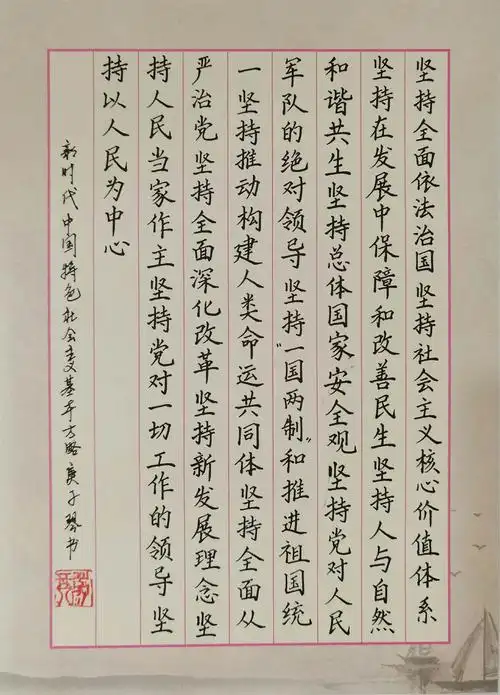 坚持全面依法治国坚持社会主义核心价值体系
坚持在发展中保障和改善民生坚持人与自然
和谐共生坚持总体国家安全观坚持党对人民
军队的绝对领导坚持“一国两制”和推进祖国统
一坚持推动构建人类命运共同体坚持全面从
严治党坚持全面深化改革坚持新发展理念坚
持人民当家作主坚持党对一切工作的领导坚
持以人民为中心
新时代中国特色社会主义基本方略庚子琴书